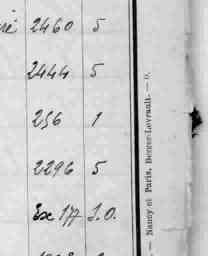 2460 5
2444 5
256 1
2296 5
Ex 177 S.O.
— Nancy et Paris, Berger-Levrault. —